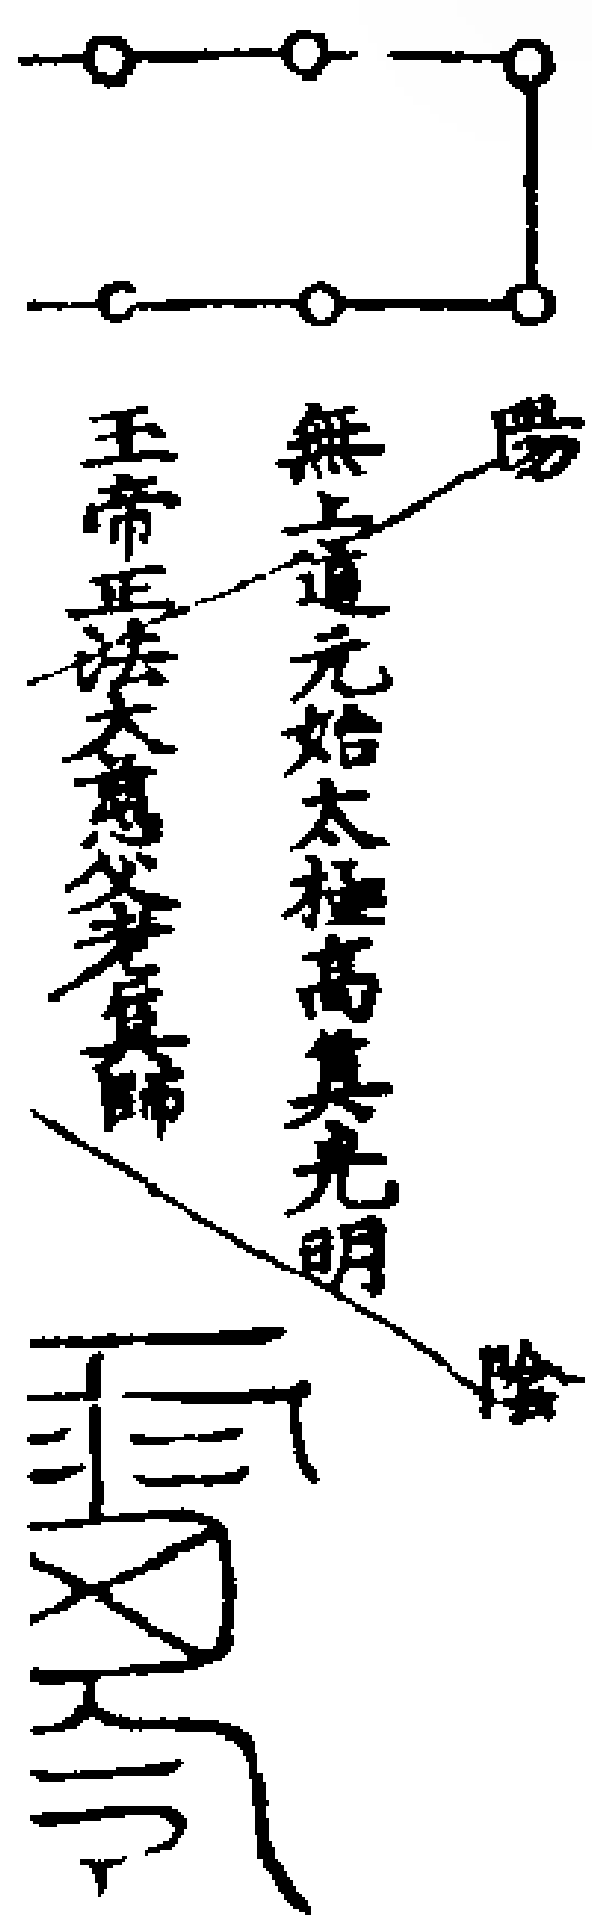 陽
陰
無上道元始太極高真光明
玉帝正法大慈父老真師